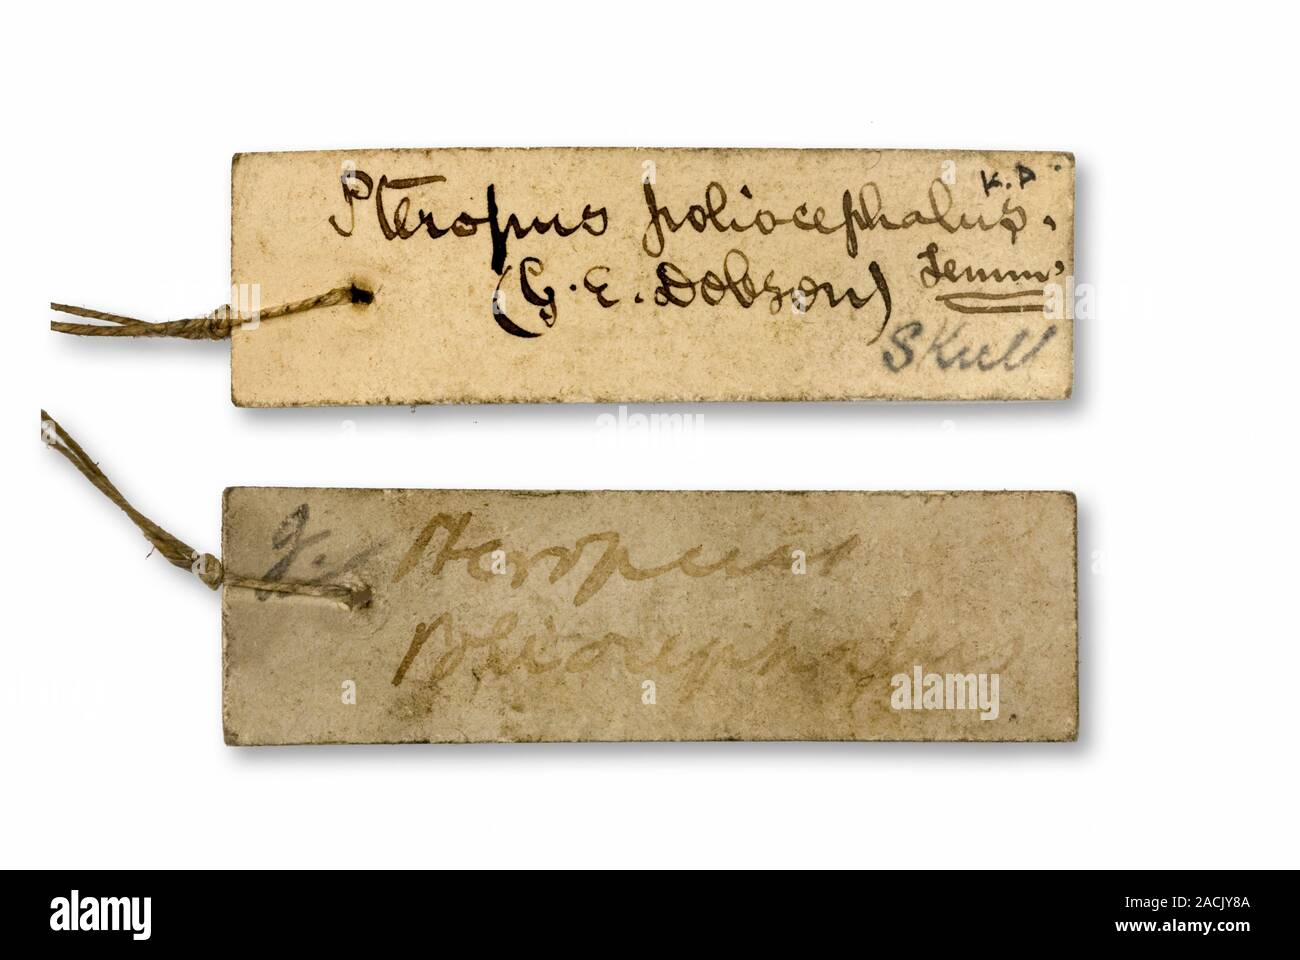 Pteropus poliocephalus. K.D.
(G. E. Dobson) Temm'
Skull
Pteropus
Poliocephalus
alamy
a
alamy
Image ID: 2ACJY8A
www.alamy.com